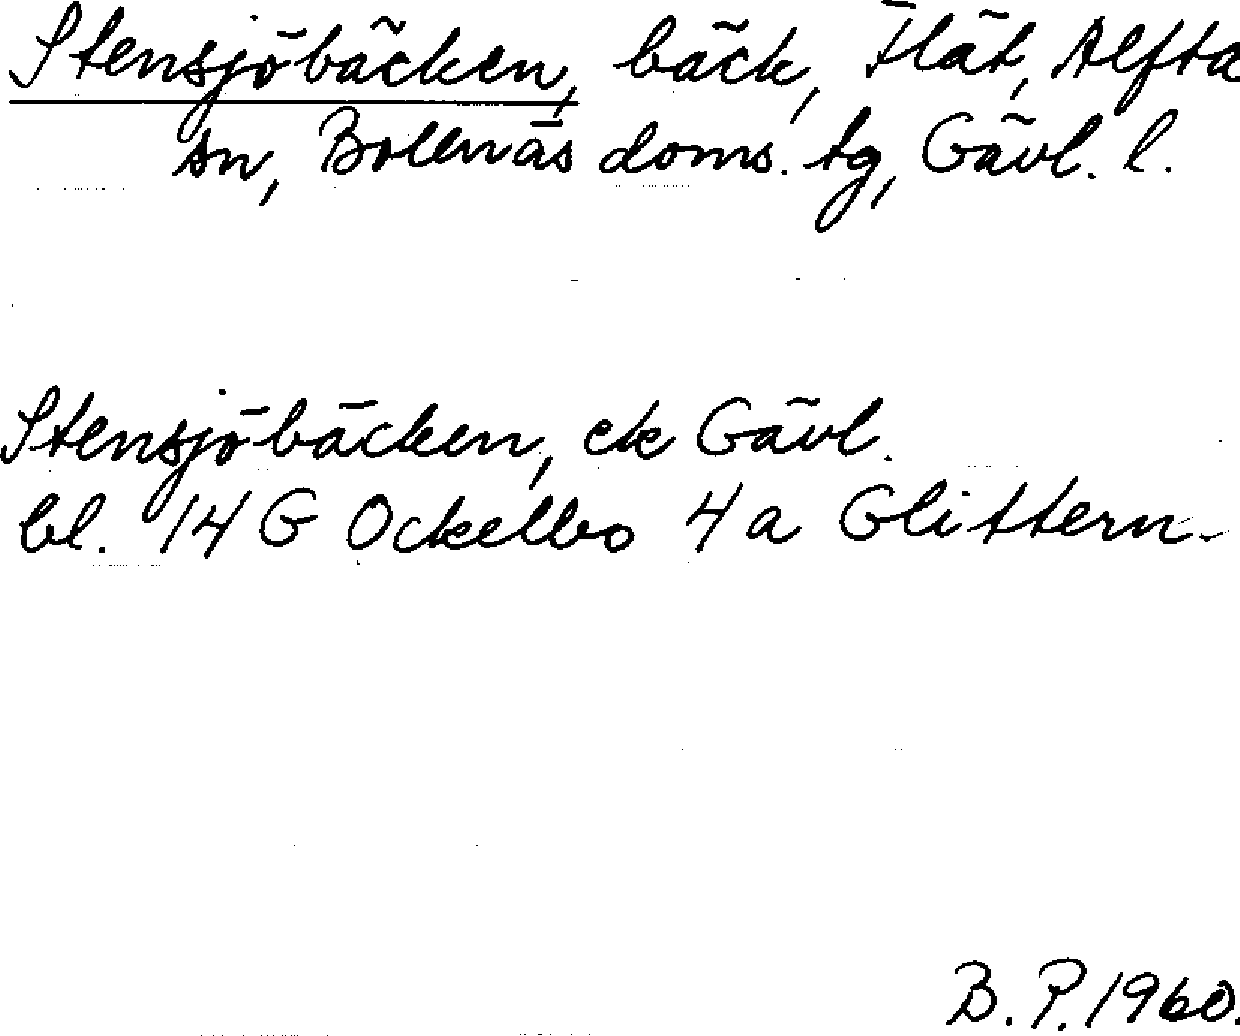 Stensjöbäcken, bäck, Flät, Alfta
sn, Bollnäs doms. tg, Gävl. l.
Stensjöbäcken, ek Gävl.
bl. 14 G Ockelbo 4 a Glittern.
B. P. 1960.